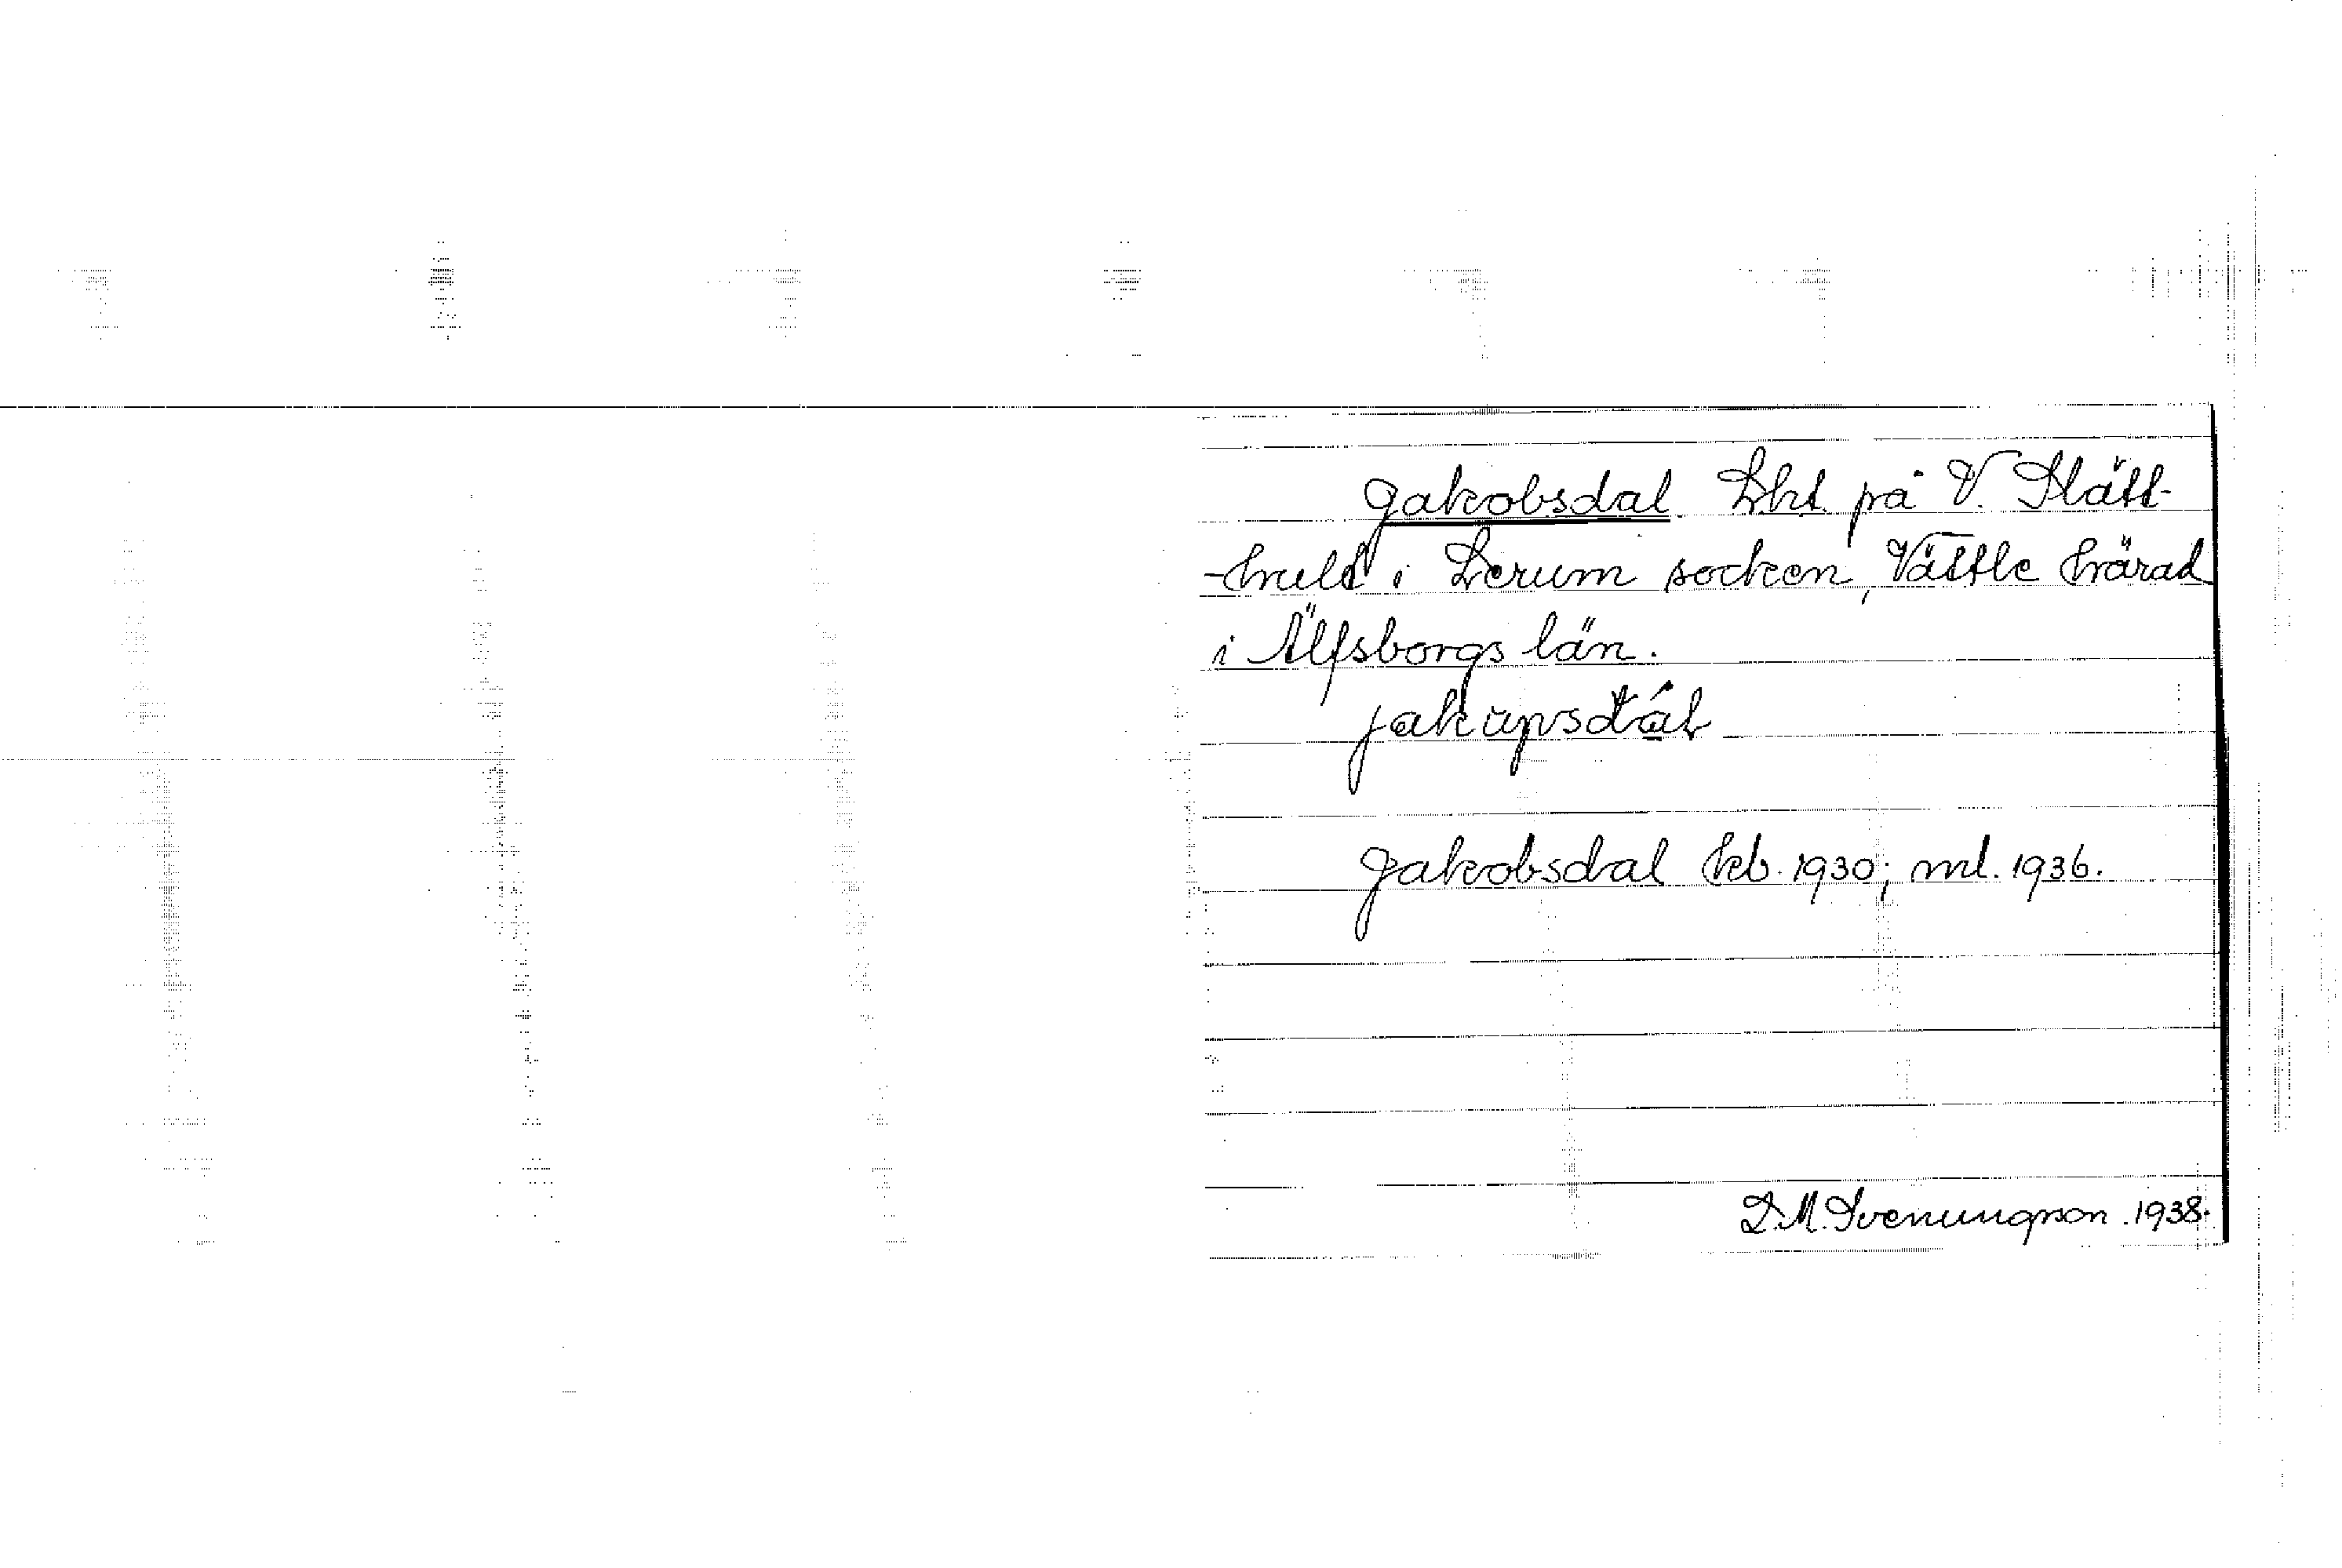 Jakobsdal. Lht. på V. Slätt-
-huld i Lerum socken, Vättle härad
i Älfsborgs län.
Jakobsdal kb. 1930; ml. 1936.
L.M. Svenungson. 1938.